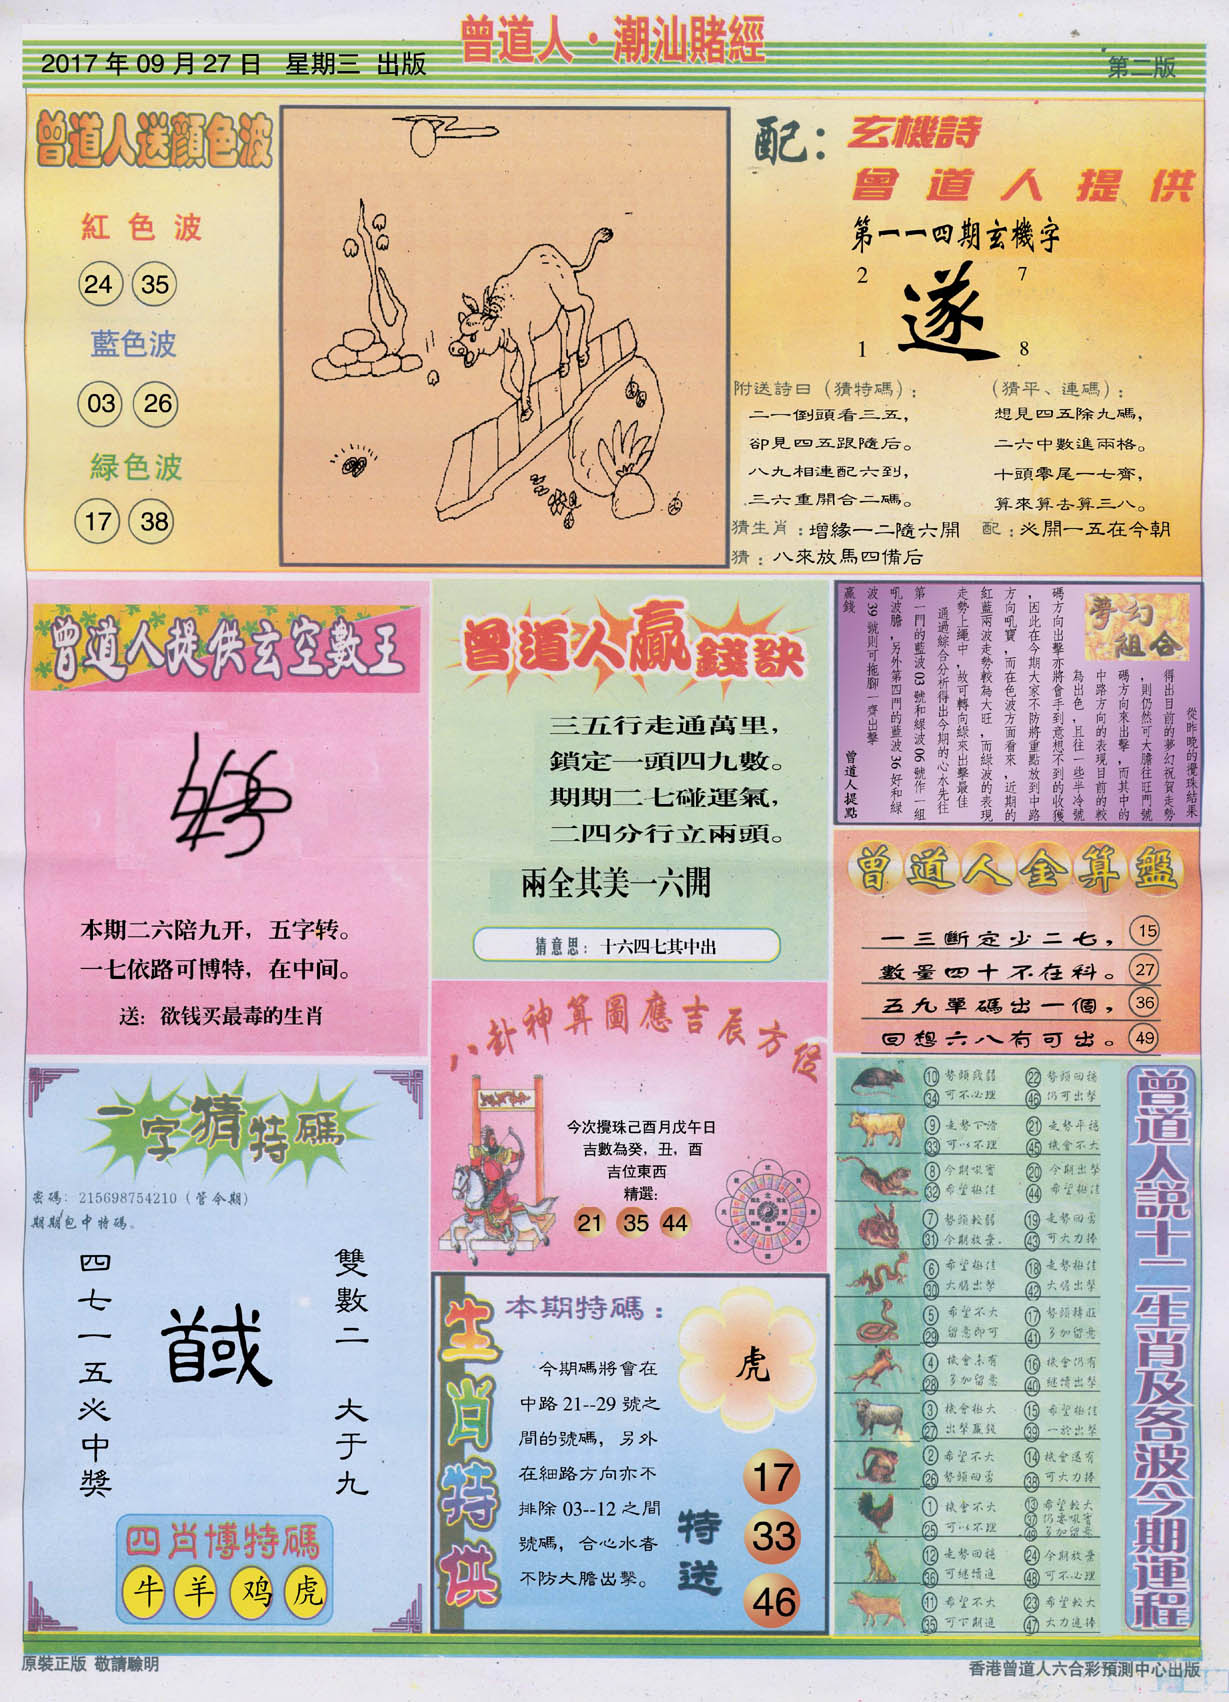 曾道人·潮汕賭經
2017年09月27日 星期三 出版
第二版
曾道人送顏色波
紅色波
24 35
藍色波
03 26
綠色波
17 38
配：玄機詩
曾道人提供
第一一四期玄機字
2 7
遂
1 8
附送詩曰（猜特碼）：
二一倒頭看三五，
卻見四五跟隨后。
八九相連配六到，
三六重開合二碼。
（猜平、連碼）：
想見四五除九碼，
二六中數進兩格。
十頭零尾一七齊，
算來算去算三八。
猜生肖：增緣一二隨六開
配：必開一五在今朝
猜：八來放馬四備后
曾道人提供玄空數王
本期二六陪九开，五字转。
一七依路可博特，在中间。
送：欲钱买最毒的生肖
曾道人贏錢訣
三五行走通萬里，
鎖定一頭四九數。
期期二七碰運氣，
二四分行立兩頭。
兩全其美一六開
猜意思：十六四七其中出
夢幻組合
從昨晚的攪珠結果
得出目前的夢幻祝賀走勢
，則仍然可大膽往旺門號
碼方向來出擊，而其中的
中路方向的表現目前的較
為出色，且往一些半冷號
碼方向出擊亦將會手到意想不到的收獲
，因此在今期大家不防將重點放到中路
方向吼寶，而在色波方面看來，近期的
紅藍兩波走勢較為大旺，而綠波的表現
走勢上繩中，故可轉向綠來出擊最佳
通過綜合分析得出今期的心水先往
第一門的藍波03號和綠波06號作一組
吼波膽，另外第四門的藍波36好和綠
波39號則可拖腳一齊出擊
贏錢
曾道人提點
曾道人金算盤
一三斷定少二七， 15
數量四十不在科。 27
五九單碼出一個， 36
回想六八有可出。 49
八卦神算圖應吉辰方位
今次攪珠己酉月戊午日
吉數為癸，丑，酉
吉位東西
精選：
21 35 44
一字猜特碼
密碼：215698754210（管今期）
期期包中特碼。
四七一五必中獎
雙數二 大于九
四肖博特碼
牛 羊 鸡 虎
生肖特供
本期特碼：
虎
今期碼將會在
中路21--29號之
間的號碼，另外
在細路方向亦不
排除03--12之間
號碼，合心水者
不防大膽出擊。
特送
17
33
46
曾道人說十二生肖及各波今期運程
10 34 勢頭殘弱 可不必理
22 46 勢頭回穩 仍可出擊
9 33 走勢下滑 可以不理
21 45 走勢平穩 機會不大
8 32 今期吼寶 希望極佳
20 44 今期出擊 希望極佳
7 31 勢頭較弱 今期放棄.
19 43 走勢回勇 可大力捧
6 30 希望極佳 大膽出擊
18 42 走勢極佳 大膽出擊
5 29 希望不大 留意即可
17 41 勢頭轉旺 多加留意
4 28 機會未有 多加留意
16 40 機會仍有 繼續出擊
3 27 機會極大 出擊贏錢
15 39 希望極佳 一於出擊
2 26 希望不大 勢頭回勇
14 38 機會還有 可大力捧
1 25 機會不大 可以不理
13 37 49 希望較大 仍要吼實 多加留意
12 36 走勢回穩 可繼續進
24 48 今期放棄 可不必理
11 35 希望不大 可下期進
23 47 希望較大 大力進捧
原裝正版 敬請驗明
香港曾道人六合彩預測中心出版